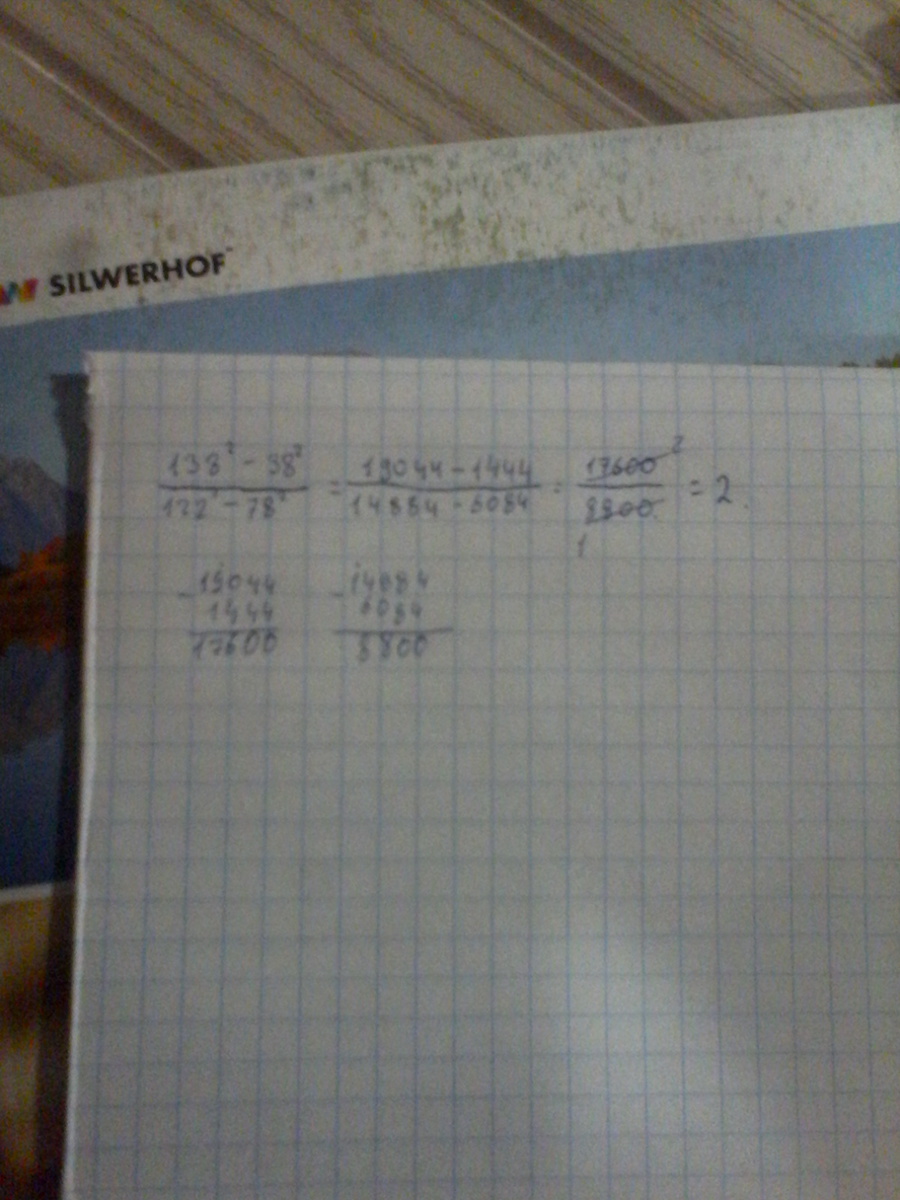 SILWERHOF™
138² - 38² / 122² - 78² = 19044 - 1444 / 14884 - 6084 = 17600 2 / 8800 1 = 2.
- 19044 - 14884
1444 6084
17600 8800